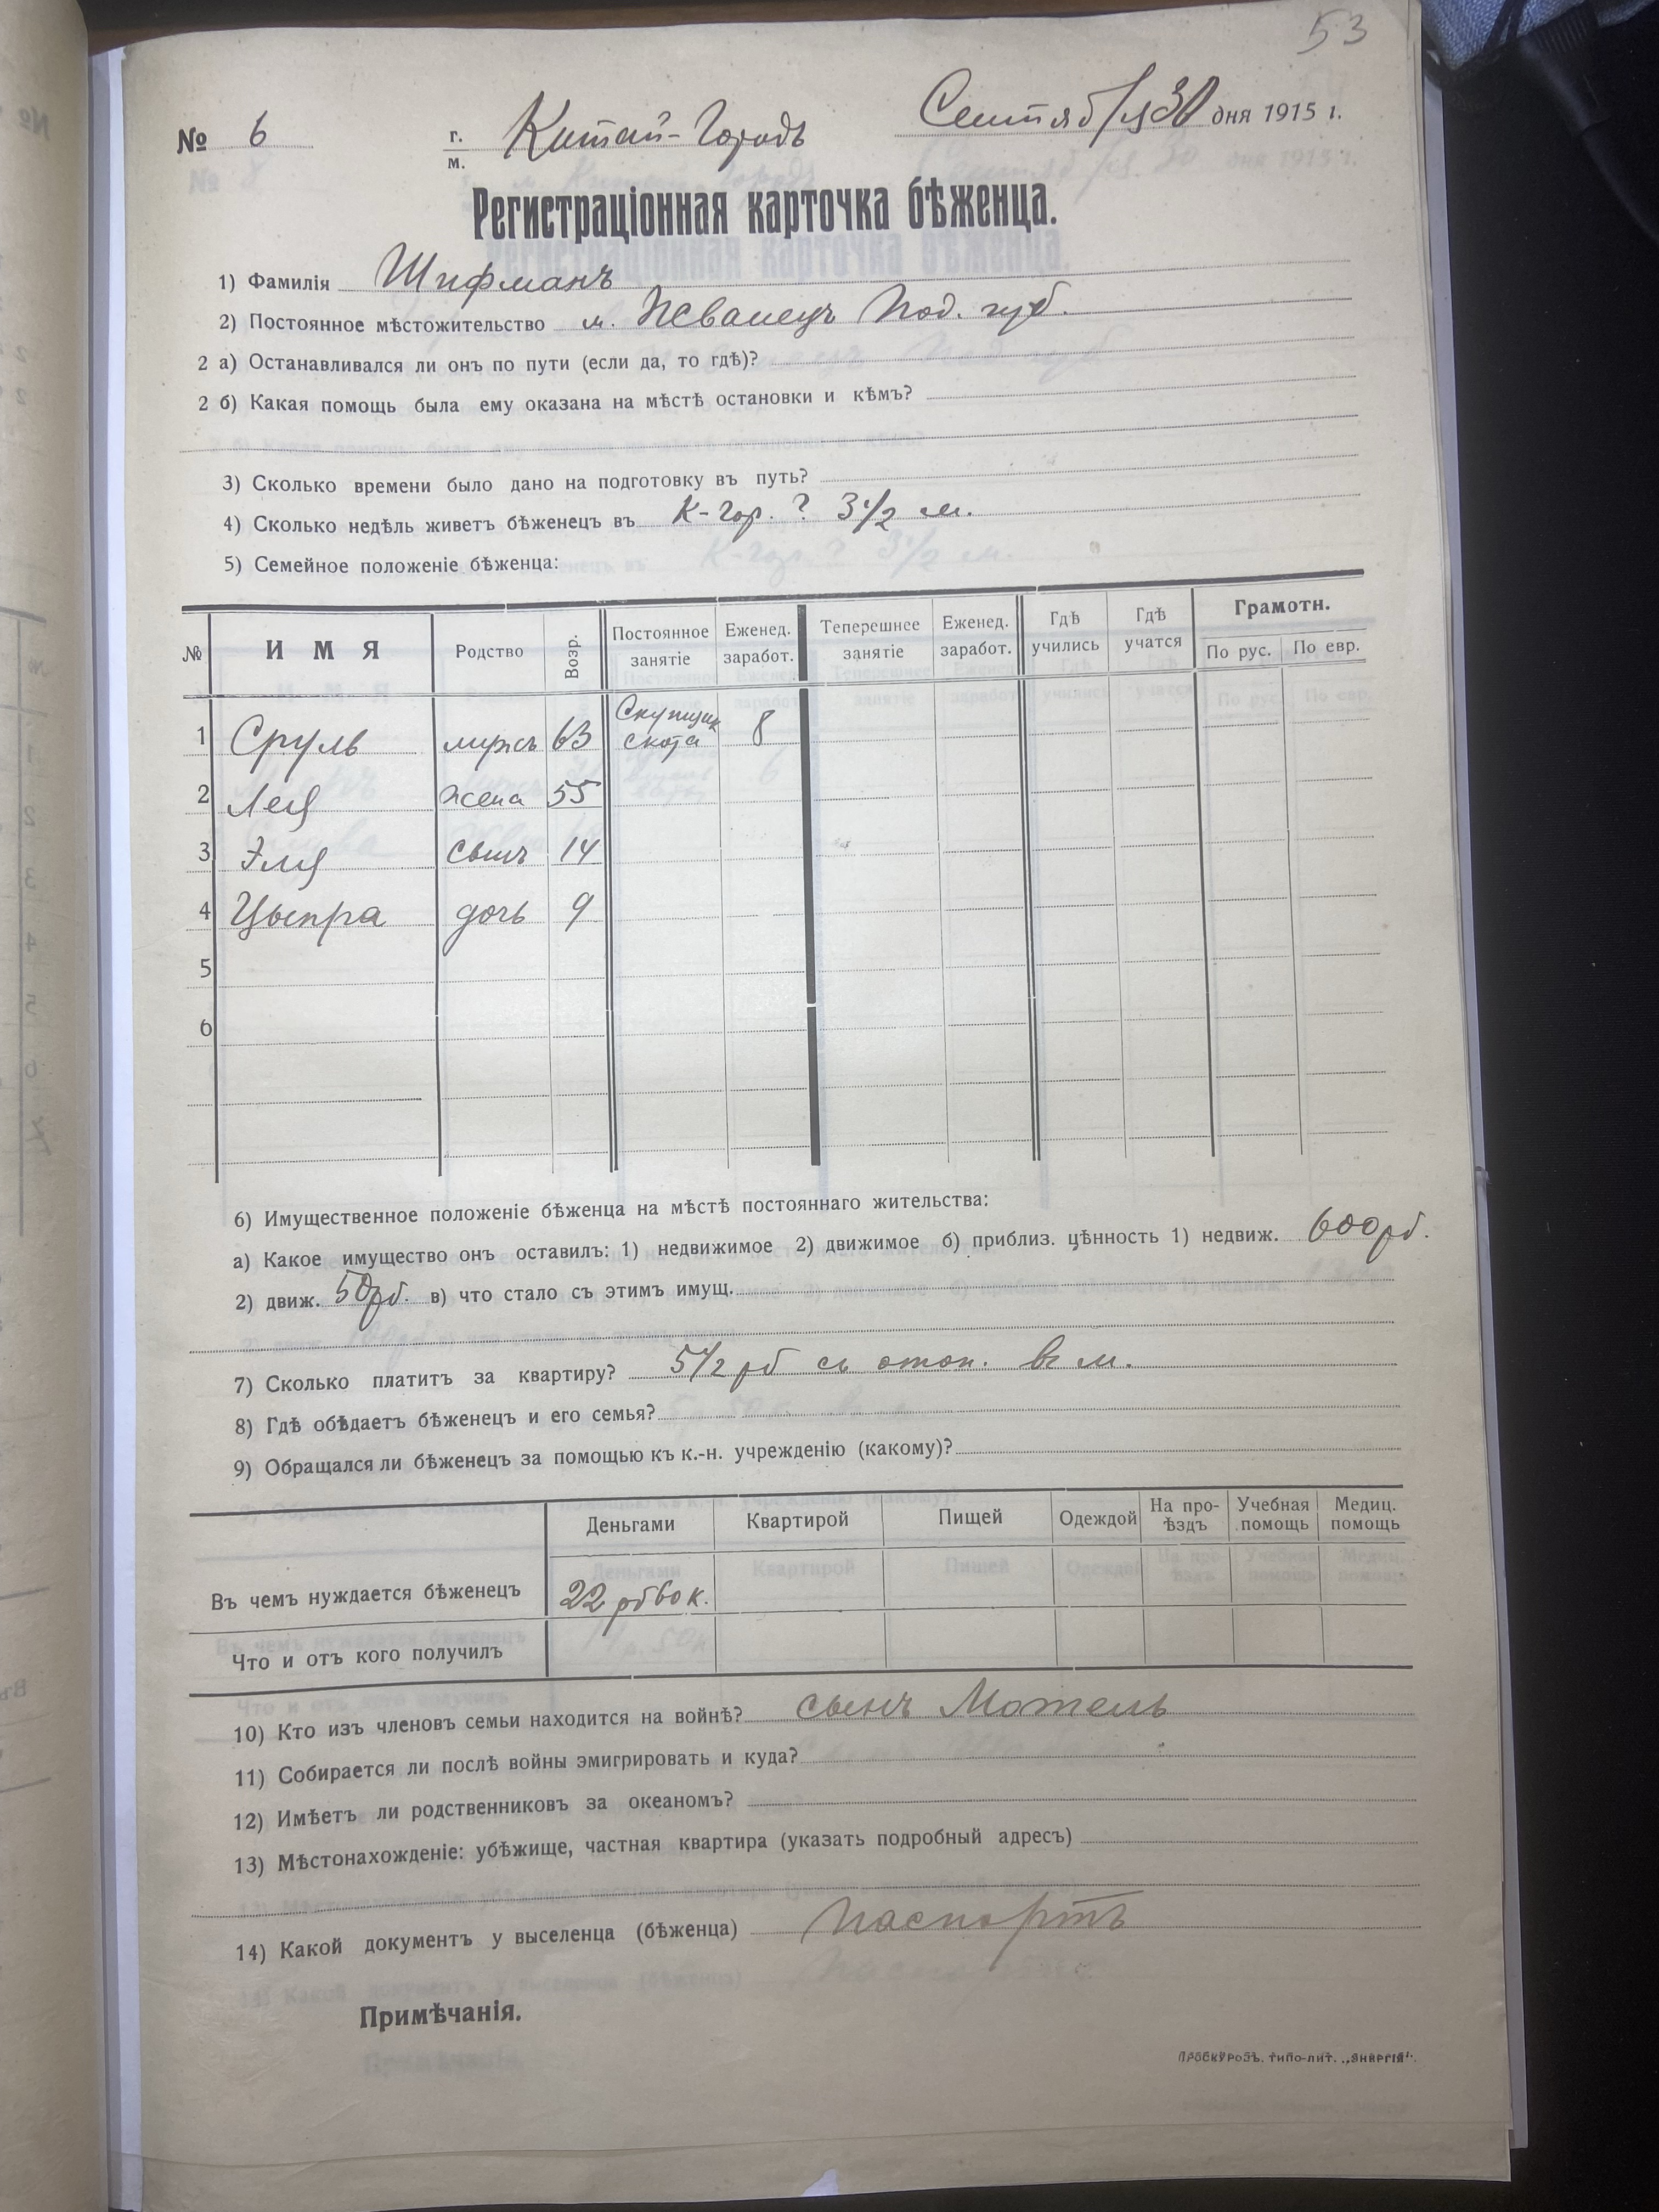 53
№ 6 г./м. Китай-Городъ Сентября 30 дня 1915 г.
Регистраціонная карточка бѣженца.
1) Фамилія Шифманъ
2) Постоянное мѣстожительство м. Жванецъ Под. губ.
2 а) Останавливался ли онъ по пути (если да, то гдѣ)?
2 б) Какая помощь была ему оказана на мѣстѣ остановки и кѣмъ?
3) Сколько времени было дано на подготовку въ путь?
4) Сколько недѣль живетъ бѣженецъ въ К-гор. ? 3 1/2 м.
5) Семейное положеніе бѣженца:
№ ИМЯ Родство Возр. Постоянное занятіе Еженед. заработ. Теперешнее занятіе Еженед. заработ. Гдѣ учились Гдѣ учатся Грамотн. По рус. По евр.
1 Сруль мужъ 63 Скупщик скота 8
2 Лея жена 55
3 Эля сынъ 14
4 Цыпра дочь 9
5
6
6) Имущественное положеніе бѣженца на мѣстѣ постояннаго жительства:
а) Какое имущество онъ оставилъ: 1) недвижимое 2) движимое б) приблиз. цѣнность 1) недвиж. 600 рб.
2) движ. 50 рб. в) что стало съ этимъ имущ.
7) Сколько платитъ за квартиру? 5 1/2 рб съ отоп. въ м.
8) Гдѣ обѣдаетъ бѣженецъ и его семья?
9) Обращался ли бѣженецъ за помощью къ к.-н. учрежденію (какому)?
Деньгами Квартирой Пищей Одеждой На про-ѣздъ Учебная помощь Медиц. помощь
Въ чемъ нуждается бѣженецъ 22 рб 60 к.
Что и отъ кого получилъ
10) Кто изъ членовъ семьи находится на войнѣ? сынъ Мотель
11) Собирается ли послѣ войны эмигрировать и куда?
12) Имѣетъ ли родственниковъ за океаномъ?
13) Мѣстонахожденіе: убѣжище, частная квартира (указать подробный адресъ)
14) Какой документъ у выселенца (бѣженца) паспортъ
Примѣчанія.
ПРОСКУРОВЪ, ТИПО-ЛИТ. „ЭНЕРГІЯ“.